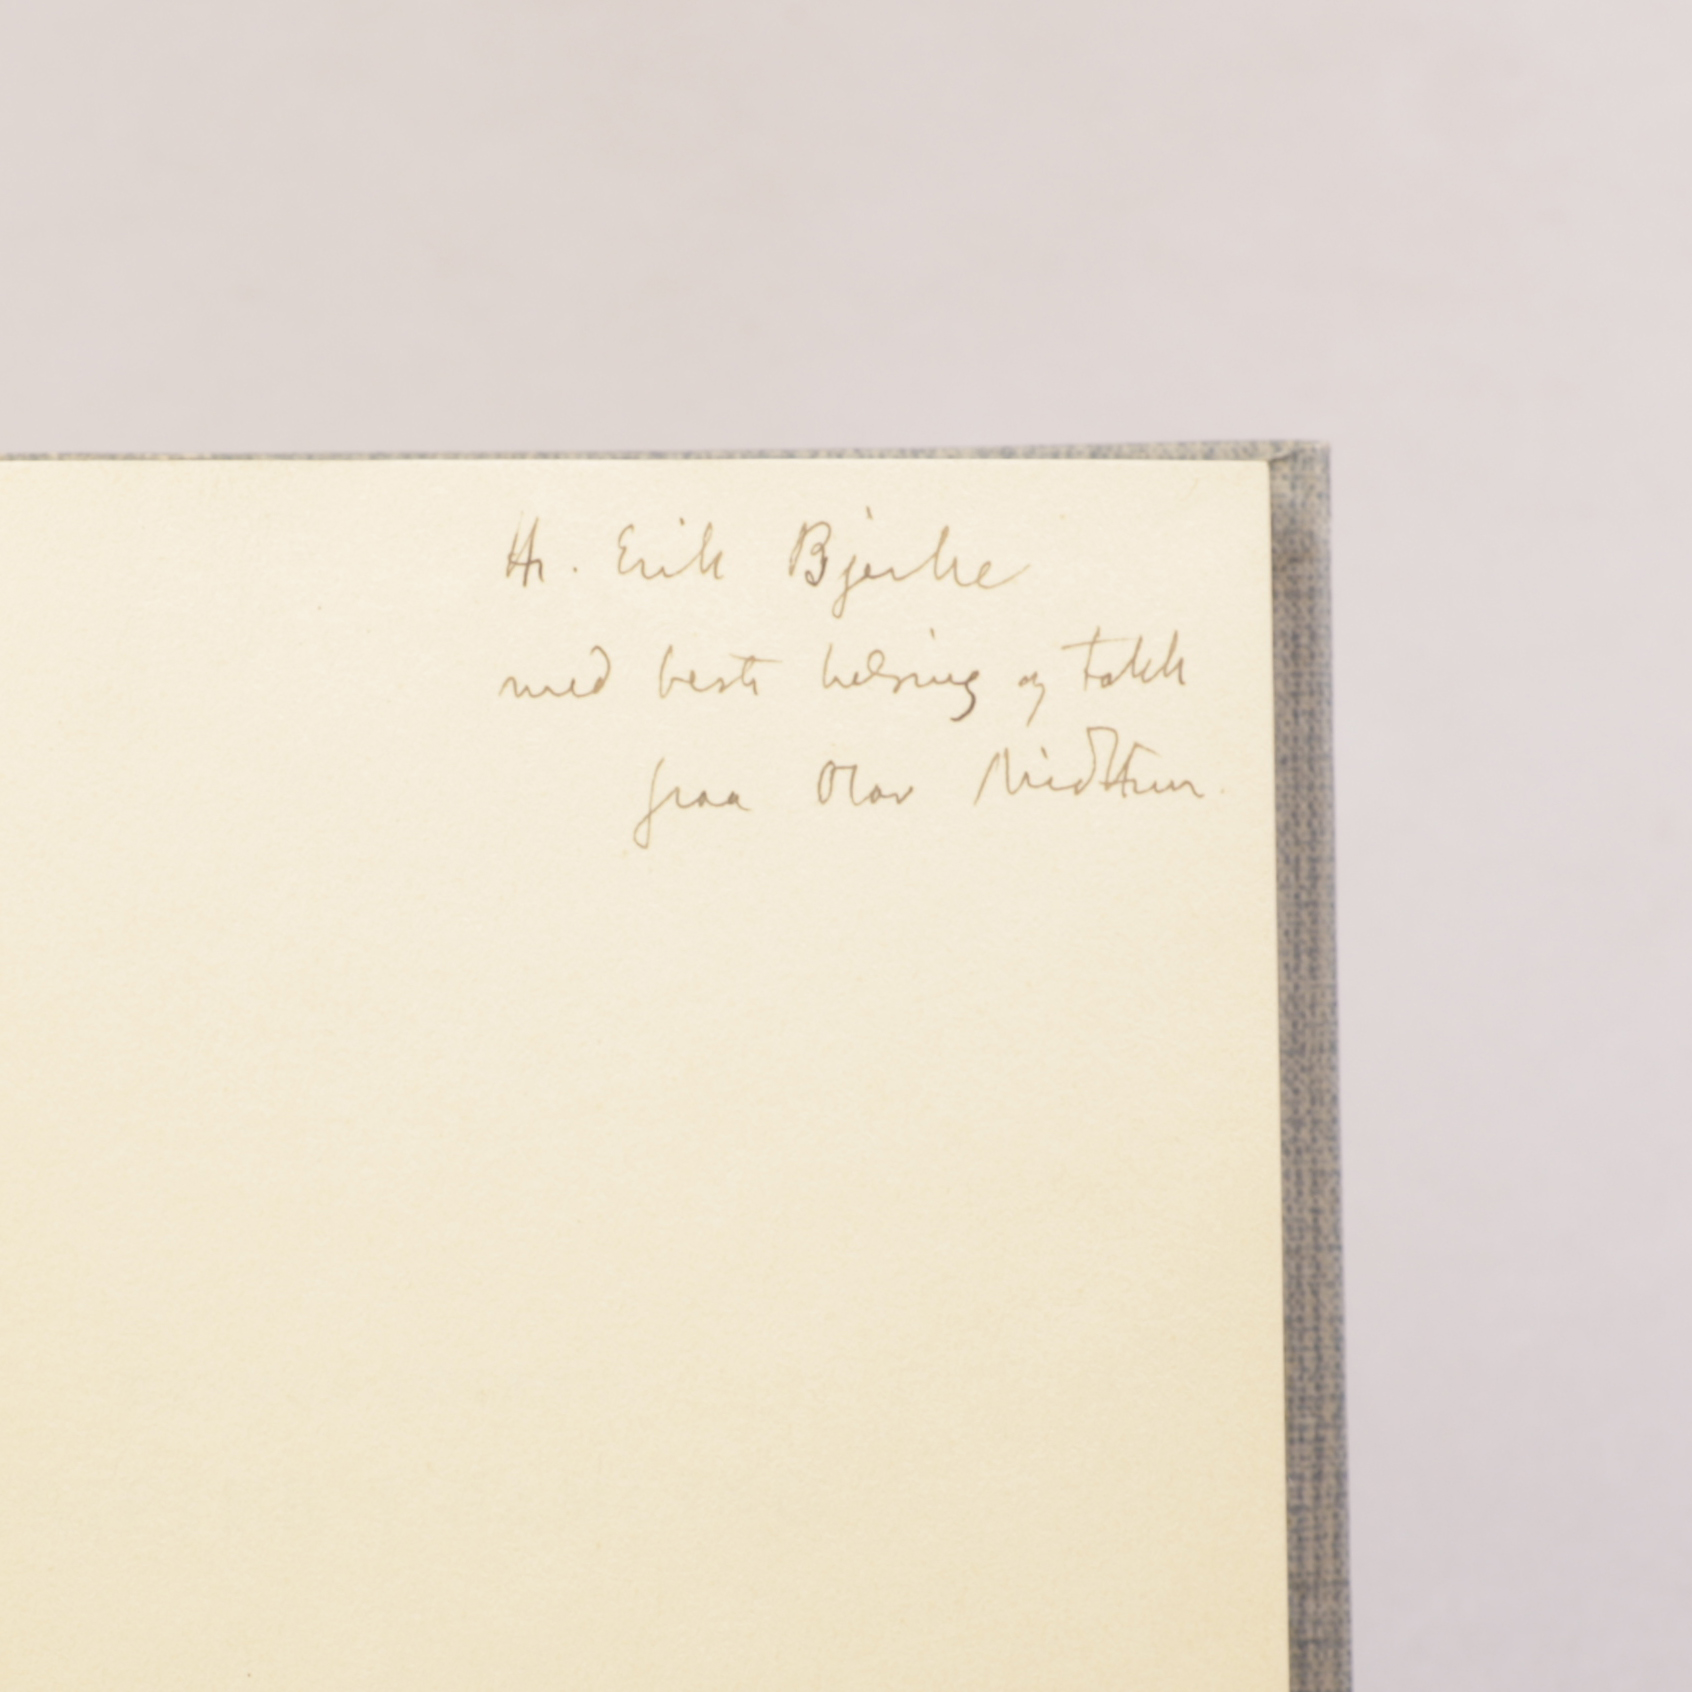 Hr. Erik Bjerke
med beste helsing og takk
fraa Olav Midttun.